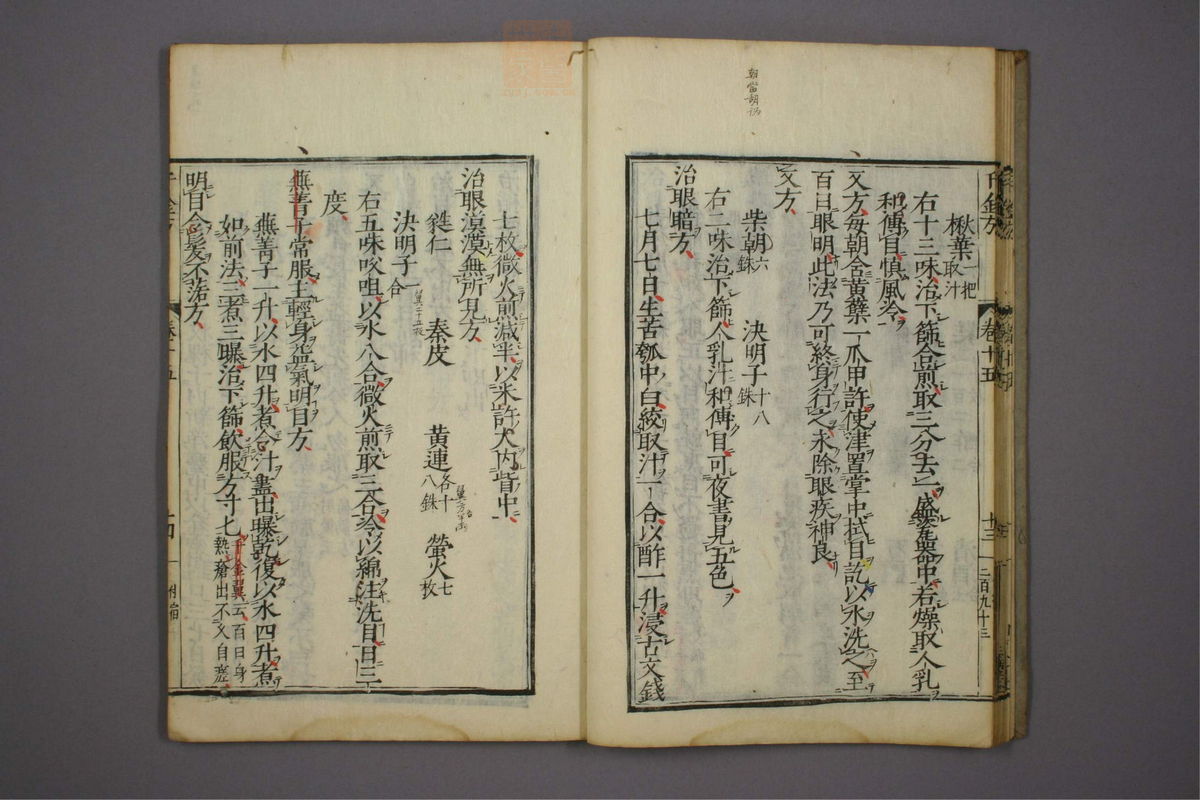 千金方 卷十五 十三 二百九十三
楸葉一把取汁
右十三味治下篩合煎取三分去一盛瓷器中若燥取人乳
和傅目慎風冷
又方每朝含黃蘗一爪甲許使津置掌中拭目訖以水洗之至
百日眼明此法乃可終身行之永除眼疾神良
又方
柴胡六銖 決明子十八銖
右二味治下篩人乳汁和傅目可夜書見五色
治眼暗方
七月七日生苦瓠中白絞取汁一合以酢一升浸古文錢
七枚微火煎減半以米許大內眥中
治眼漠漠無所見方
蕤仁 秦皮 黃連各十八銖 螢火七枚
決明子一合
右五味㕮咀以水八合微火煎取三合冷以綿注洗目日三
度
蕪菁子常服主輕身益氣明目方
蕪菁子一升以水四升煮令汁盡出曝乾復以水四升煮
如前法三煮三曝治下篩飲服方寸匕千金翼云百日身熱瘡出不久自瘥
明目令髮不落方
千金方 卷十五